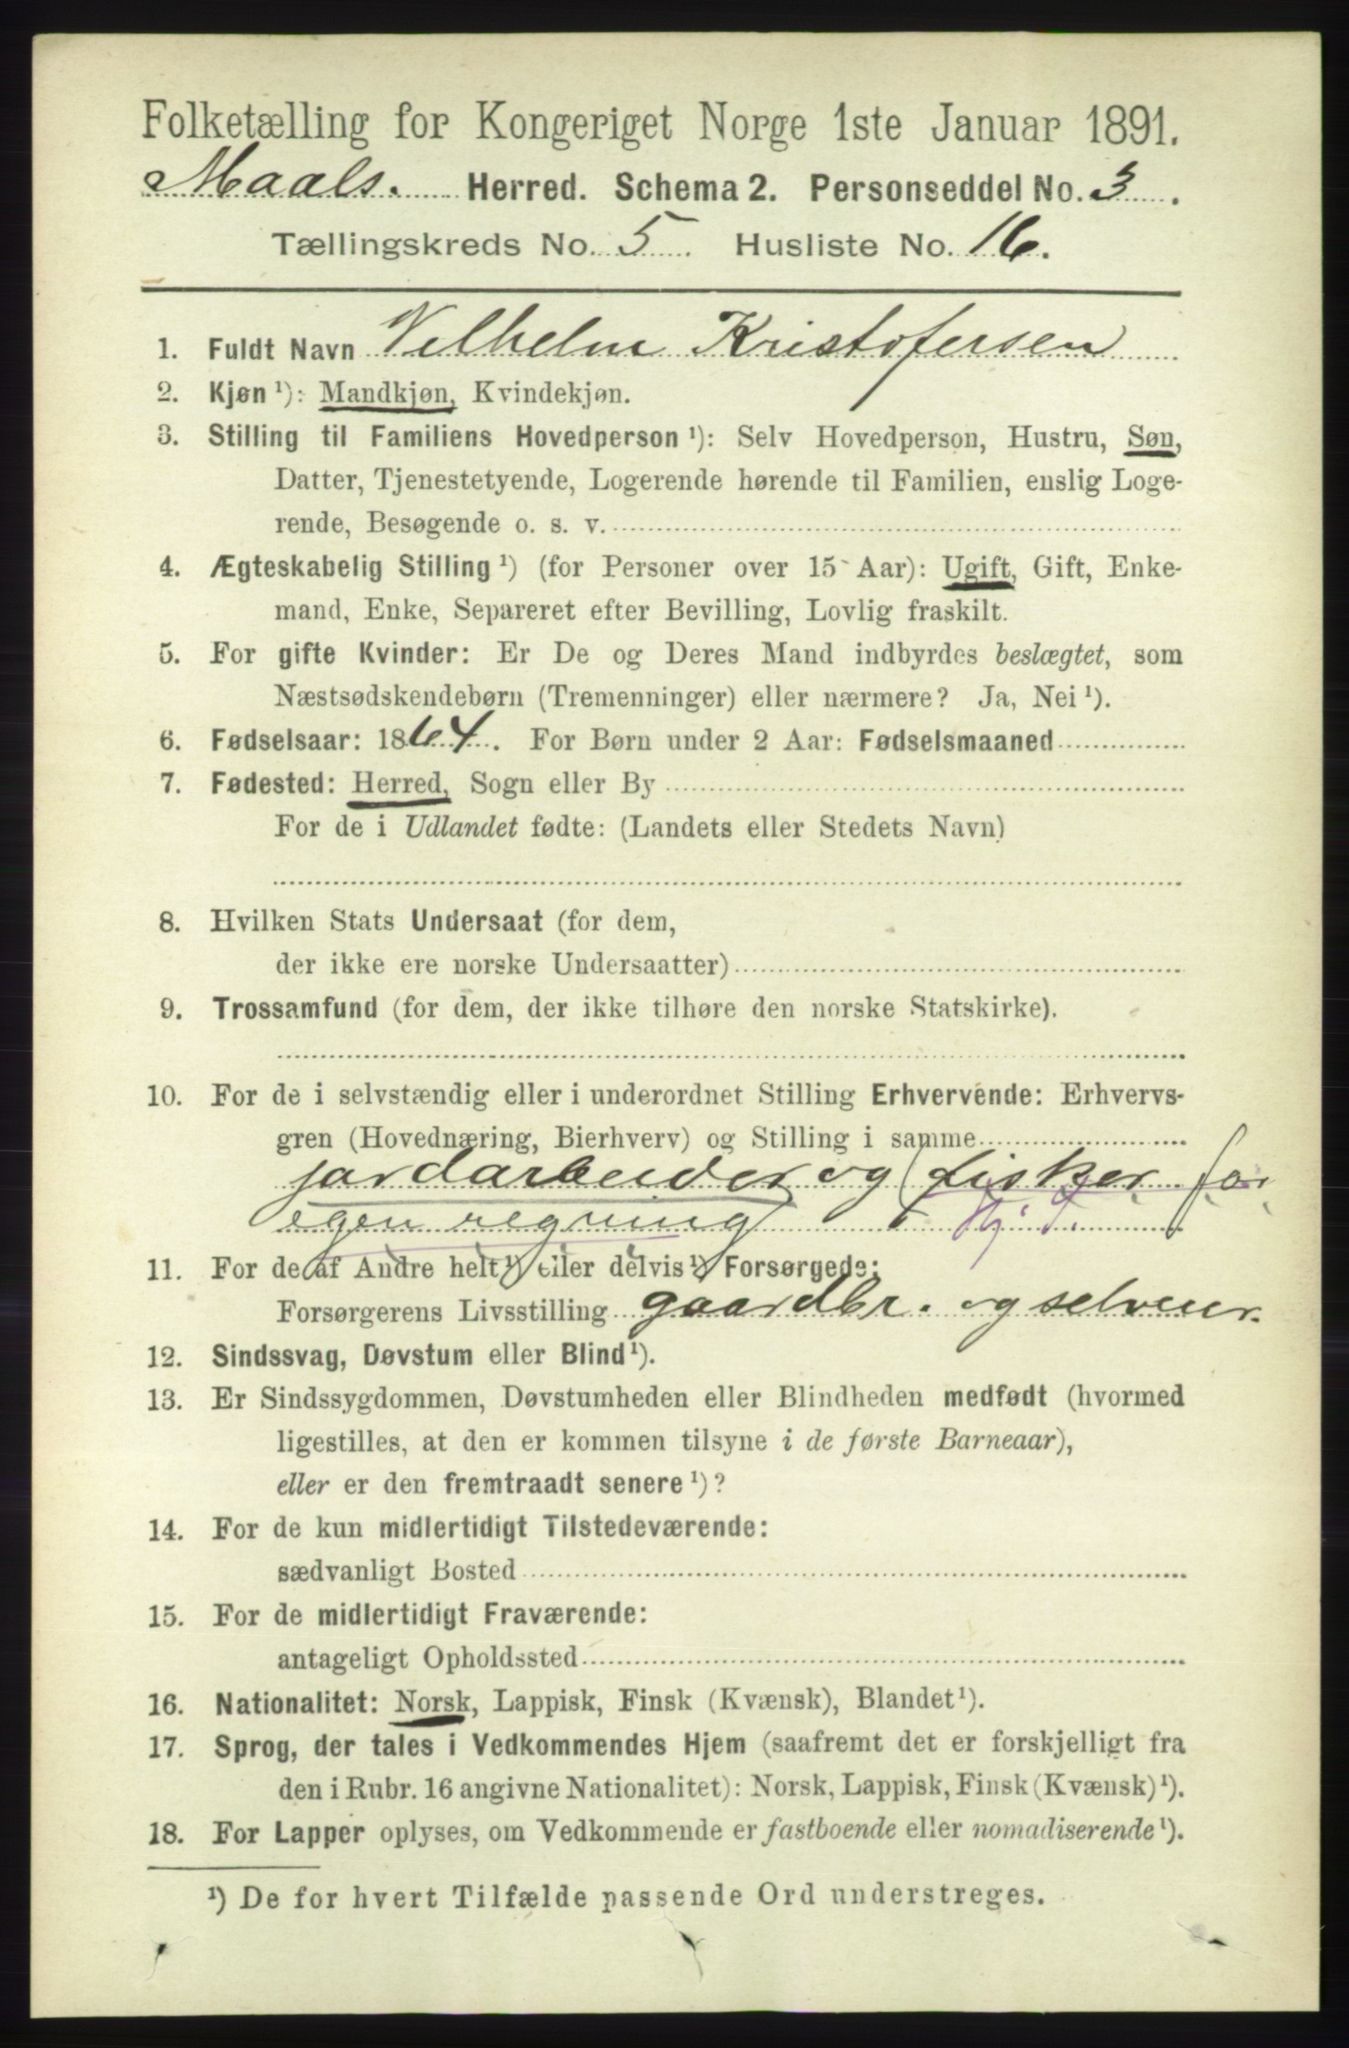 Folketælling for Kongeriget Norge 1ste Januar 1891.
Maals. Herred. Schema 2. Personseddel No. 3.
Tællingskreds No. 5. Husliste No. 16.
1. Fuldt Navn Vilhelm Kristofersen
2. Kjøn ¹): Mandkjøn, Kvindekjøn.
3. Stilling til Familiens Hovedperson ¹): Selv Hovedperson, Hustru, Søn,
Datter, Tjenestetyende, Logerende hørende til Familien, enslig Loge-
rende, Besøgende o. s. v.
4. Ægteskabelig Stilling ¹) (for Personer over 15 Aar): Ugift, Gift, Enke-
mand, Enke, Separeret efter Bevilling, Lovlig fraskilt.
5. For gifte Kvinder: Er De og Deres Mand indbyrdes beslægtet, som
Næstsødskendebørn (Tremenninger) eller nærmere? Ja, Nei ¹).
6. Fødselsaar: 1864. For Børn under 2 Aar: Fødselsmaaned
7. Fødested: Herred, Sogn eller By
For de i Udlandet fødte: (Landets eller Stedets Navn)
8. Hvilken Stats Undersaat (for dem,
der ikke ere norske Undersaatter)
9. Trossamfund (for dem, der ikke tilhøre den norske Statskirke).
10. For de i selvstændig eller i underordnet Stilling Erhvervende: Erhvervs-
gren (Hovednæring, Bierhverv) og Stilling i samme
jordarbeider og fisker for
egen regning
11. For de af Andre helt ¹) eller delvis ¹) Forsørgede:
Forsørgerens Livsstilling gaardbr. og selveier.
12. Sindssvag, Døvstum eller Blind ¹).
13. Er Sindssygdommen, Døvstumheden eller Blindheden medfødt (hvormed
ligestilles, at den er kommen tilsyne i de første Barneaar),
eller er den fremtraadt senere ¹)?
14. For de kun midlertidigt Tilstedeværende:
sædvanligt Bosted
15. For de midlertidigt Fraværende:
antageligt Opholdssted
16. Nationalitet: Norsk, Lappisk, Finsk (Kvænsk), Blandet ¹).
17. Sprog, der tales i Vedkommendes Hjem (saafremt det er forskjelligt fra
den i Rubr. 16 angivne Nationalitet): Norsk, Lappisk, Finsk (Kvænsk) ¹).
18. For Lapper oplyses, om Vedkommende er fastboende eller nomadiserende ¹).
¹) De for hvert Tilfælde passende Ord understreges.